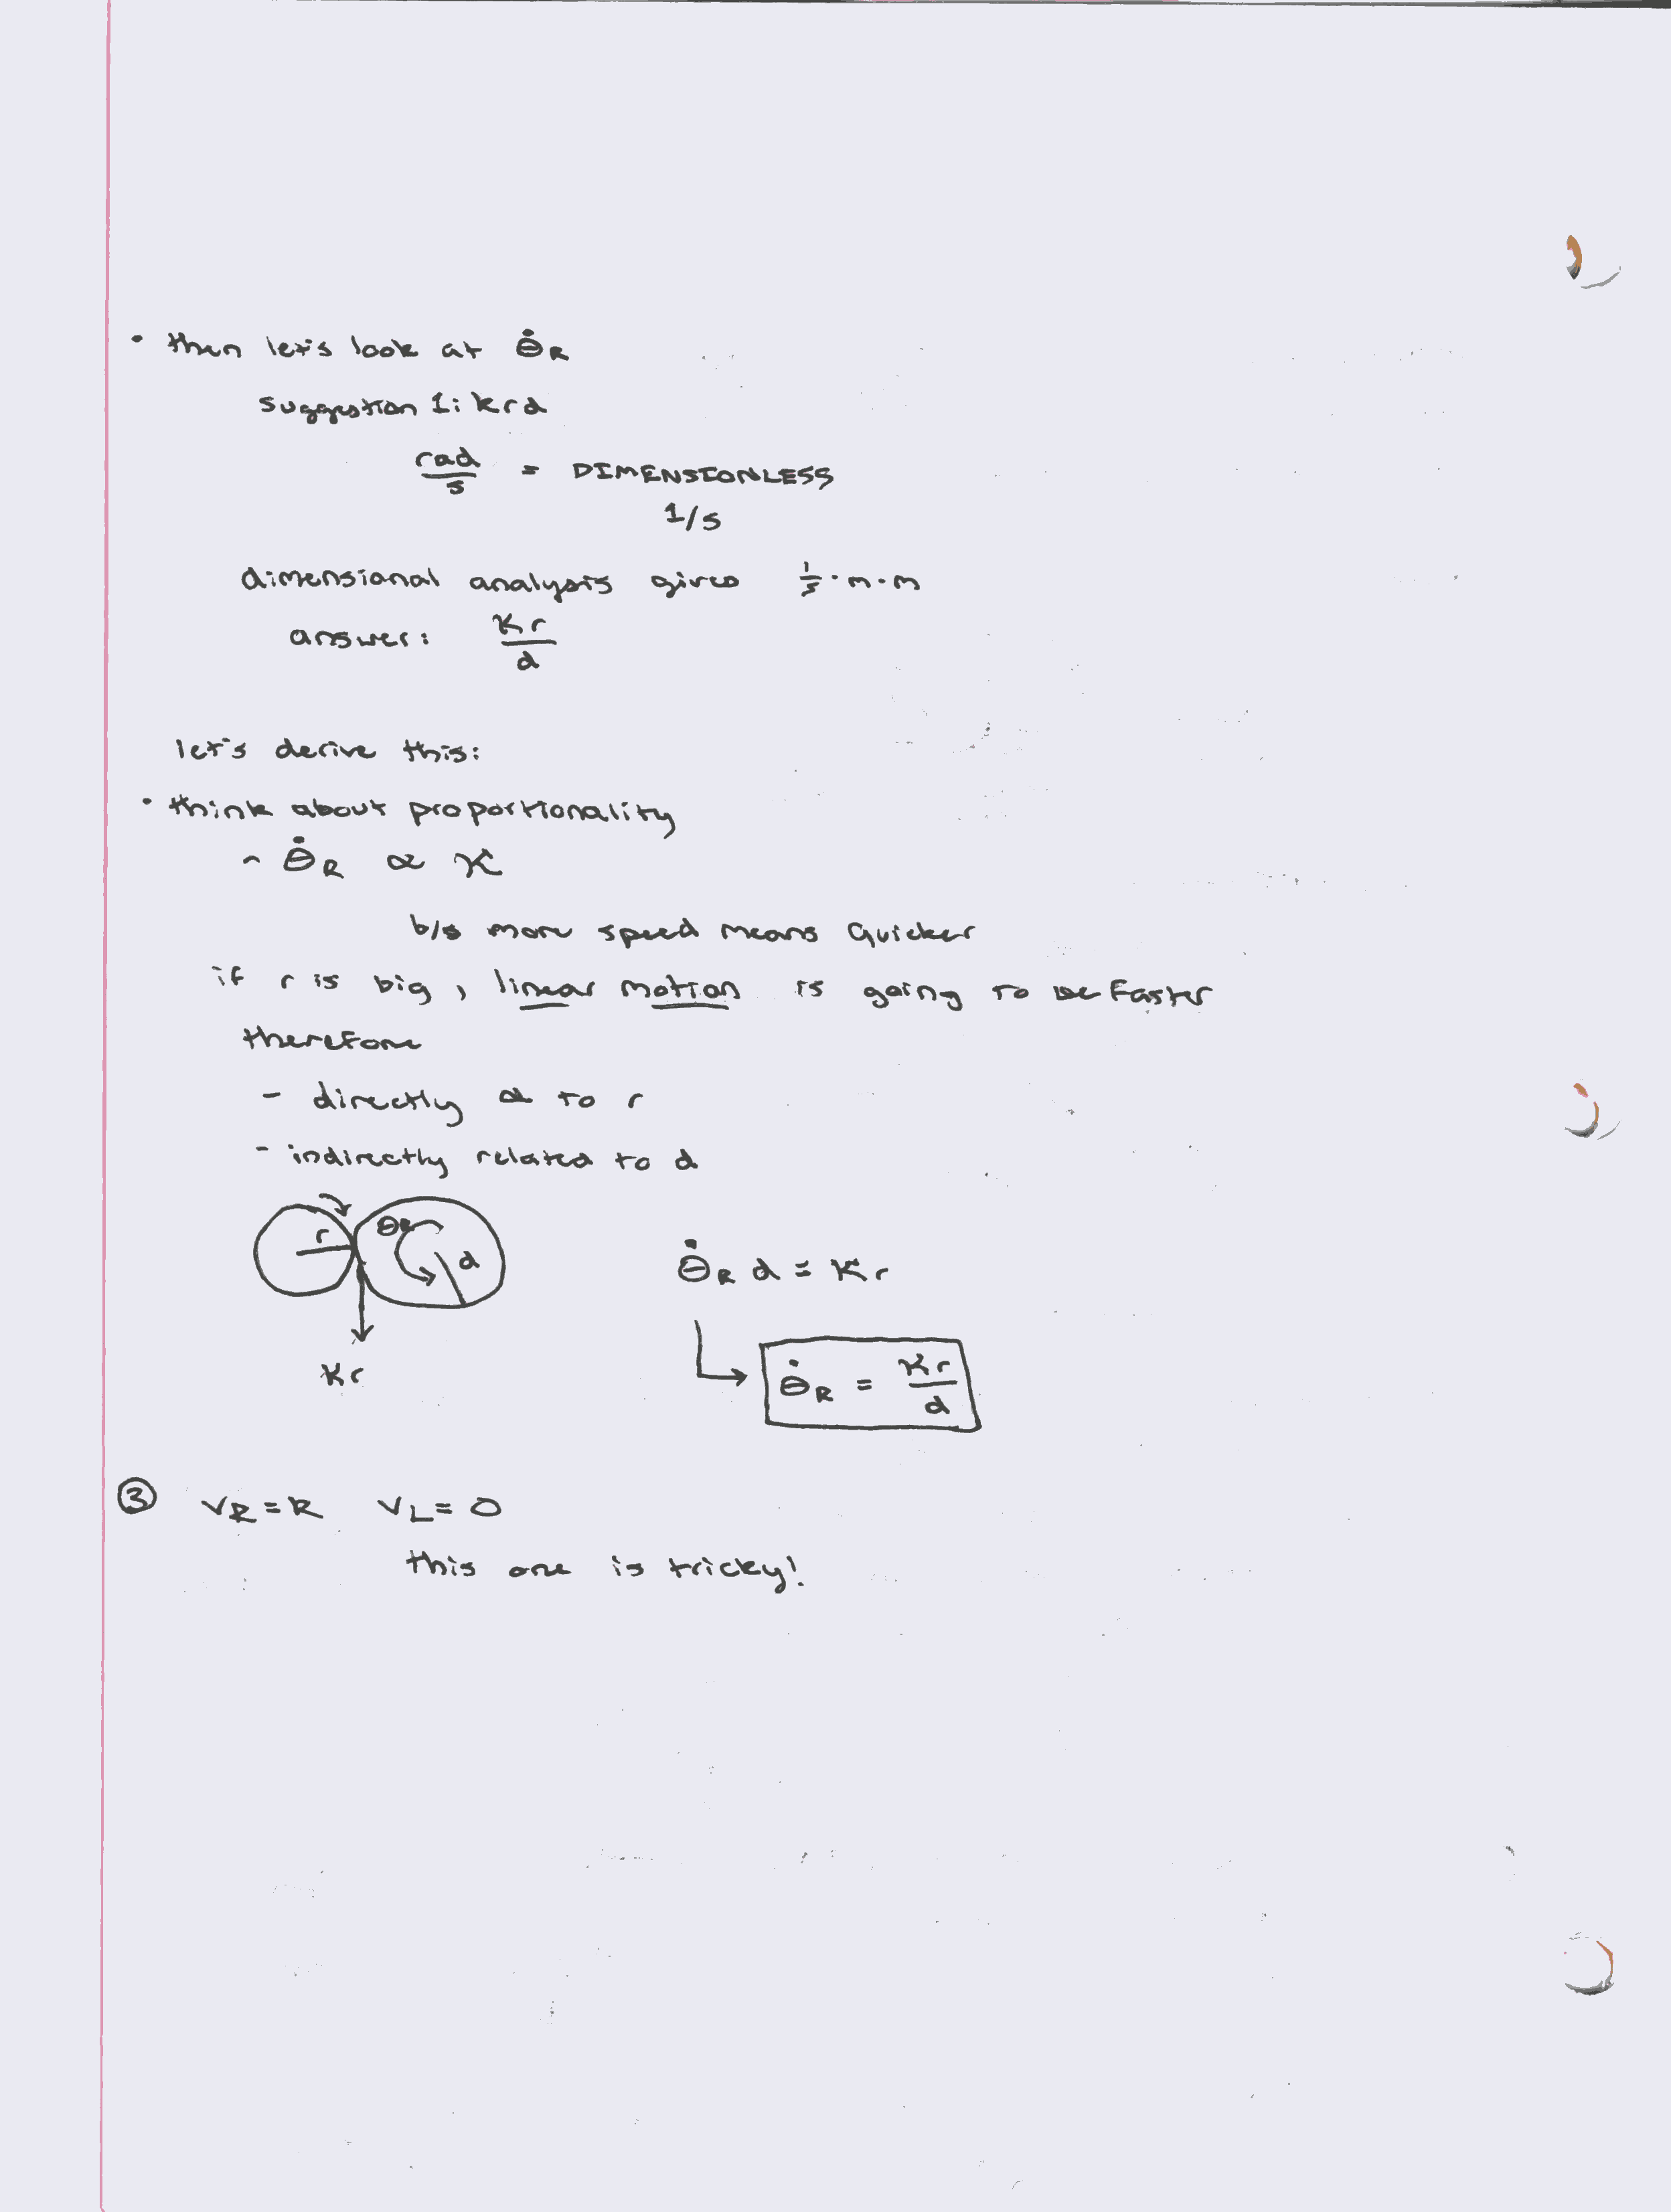 • then let's look at θ̇R
suggestion 1: krd
rad/s = DIMENSIONLESS
1/s
dimensional analysis gives 1/s · m · m
answer: Kr/d
let's derive this:
• think about proportionality
- θ̇R ∝ K
b/s more speed means quicker
if r is big, linear motion is going to be faster
therefore
- directly ∝ to r
- indirectly related to d
r θR d
θ̇R d = Kr
Kr
θ̇R = Kr/d
③ VR = K VL = 0
this one is tricky!